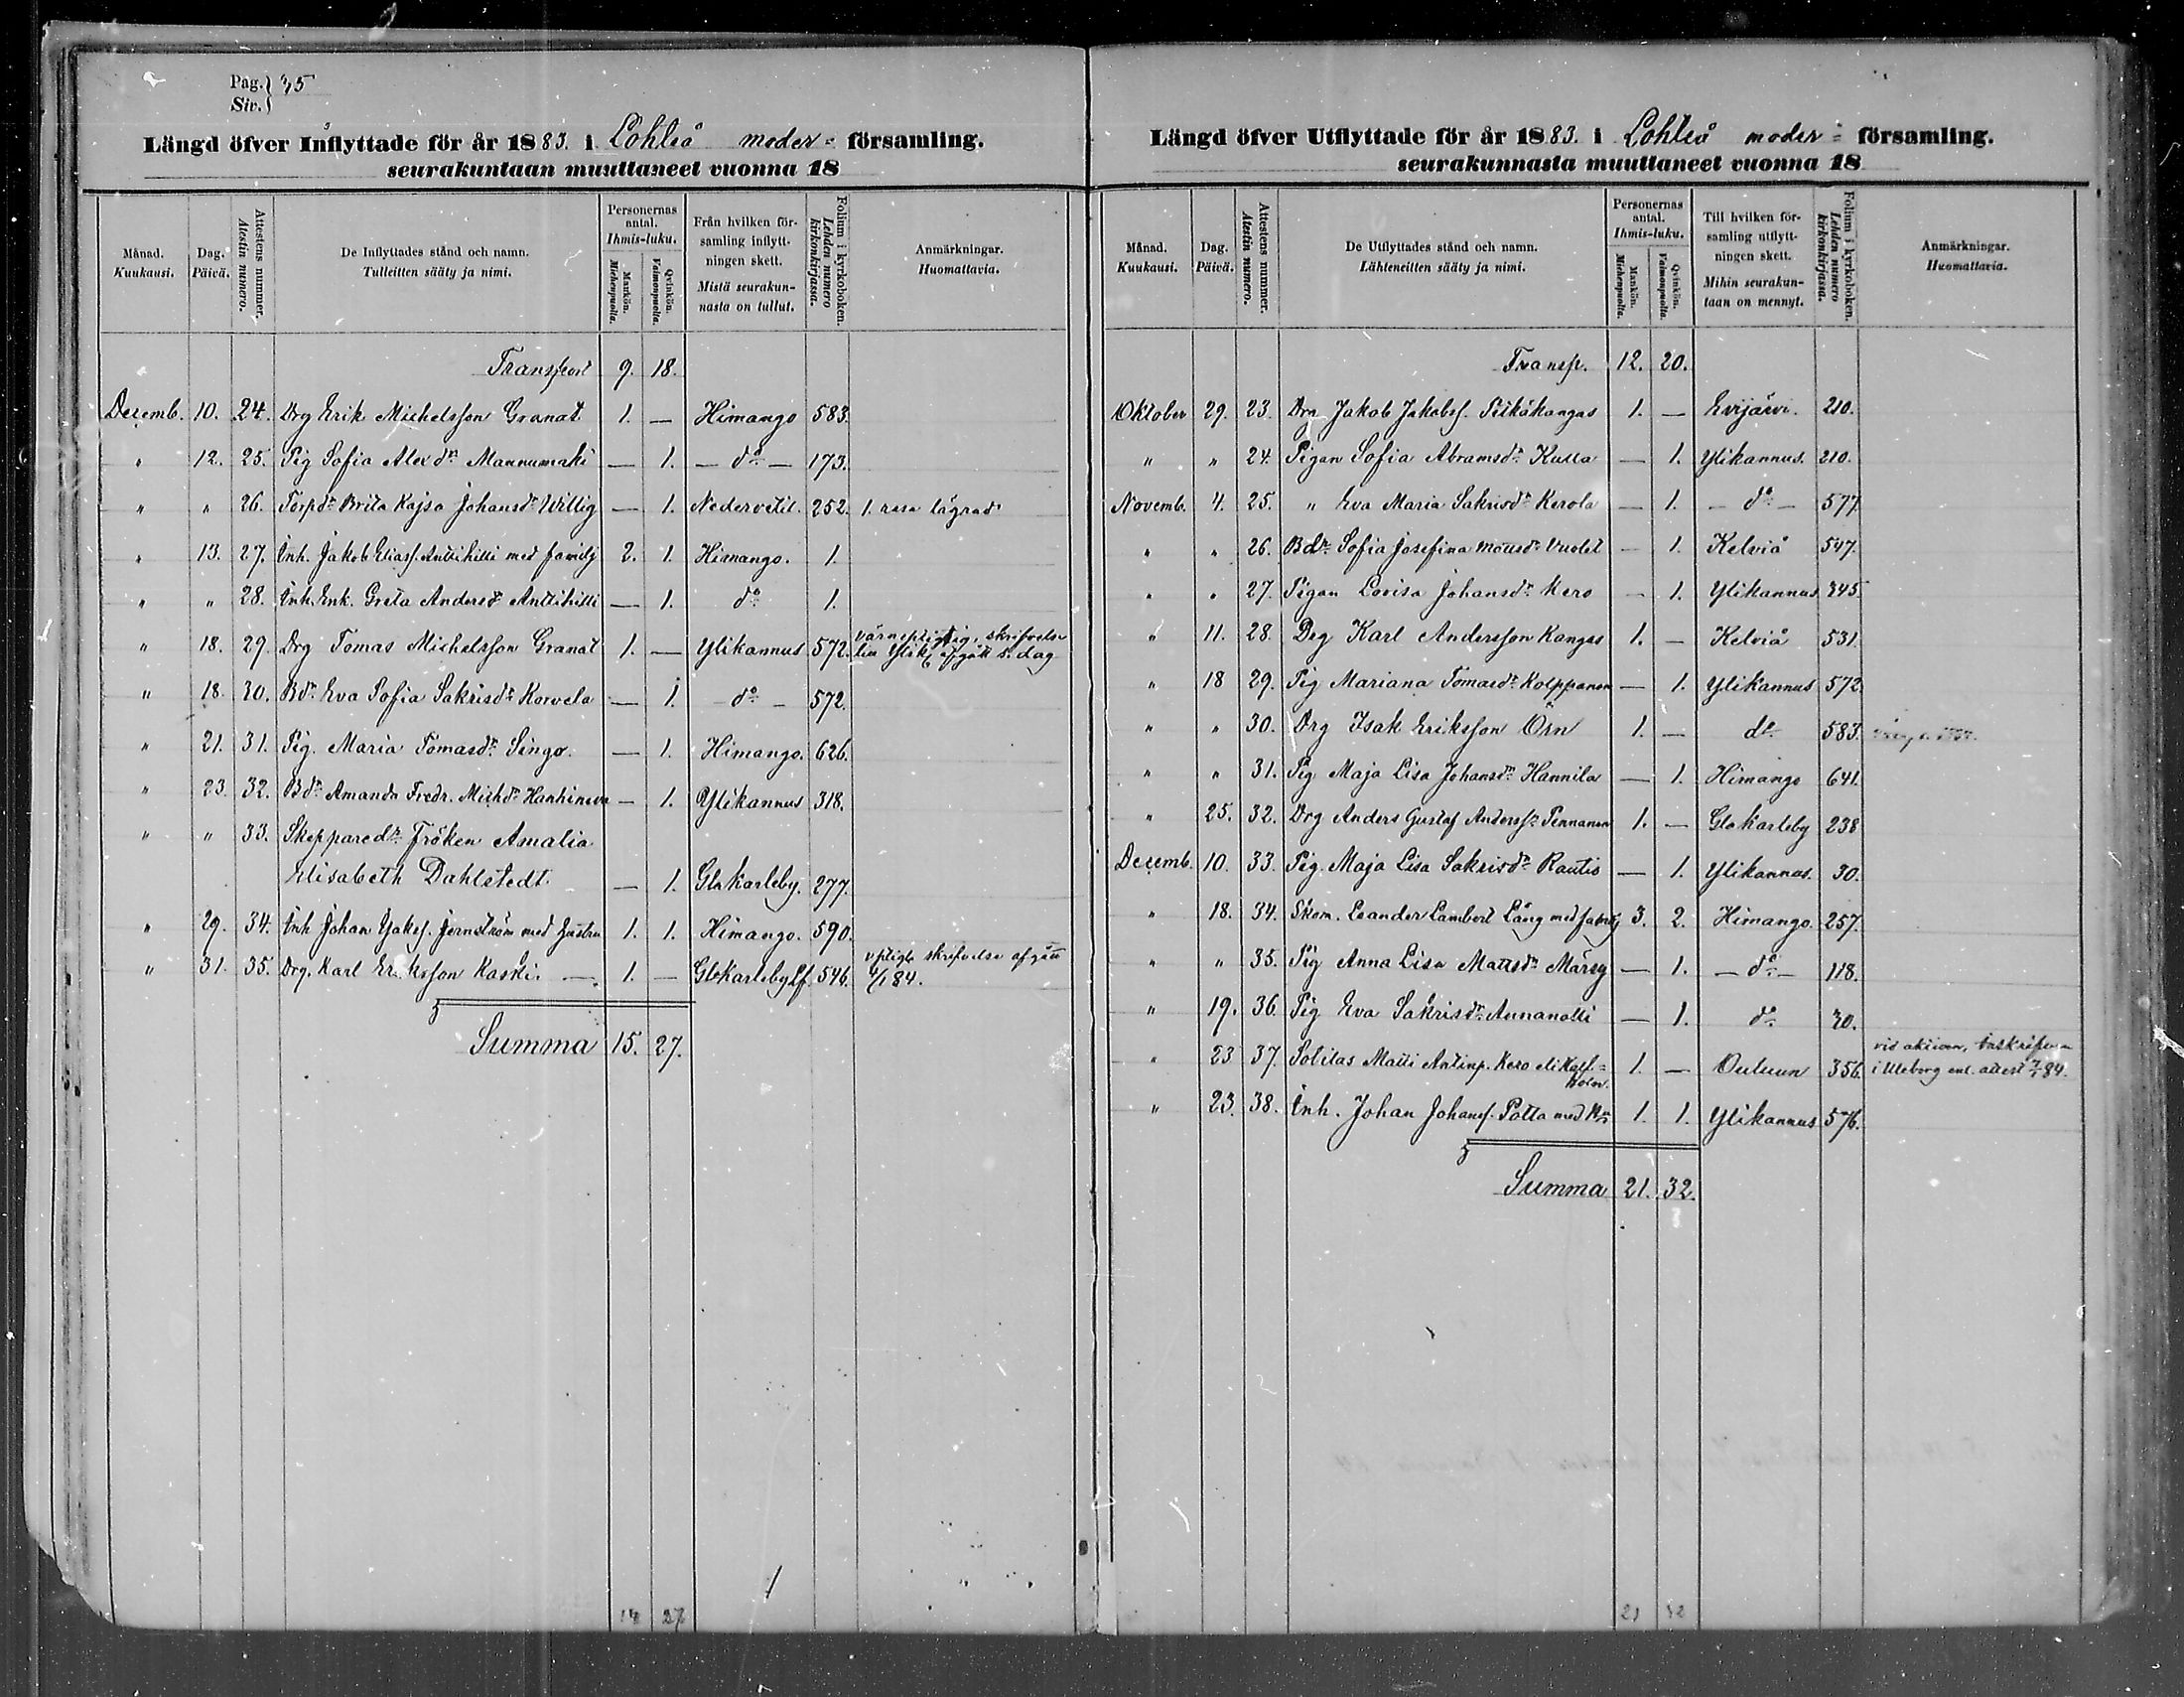 Pag. 35
Siv.
Längd öfver Inflyttade för år 1883. i Lohteå moder- församling.
seurakuntaan muuttaneet vuonna 18
Månad. Kuukausi.
Dag. Päivä.
Attestens nummer. Atestin numero.
De Inflyttades stånd och namn. Tulleitten sääty ja nimi.
Personernas antal. Ihmis-luku.
Mankön. Miehenpuolta.
Qvinkön. Vaimonpuolta.
Från hvilken församling inflyttningen skett. Mistä seurakunnasta on tullut.
Folium i kyrkoboken. Lehden numero kirkonkirjassa.
Anmärkningar. Huomattavia.
Transport 9. 18.
Decemb. 10. 24. Drg Erik Michelsson Granat 1. — Himango 583.
" 12. 25. Pig Sofia Alexdr Mannumäki — 1. — do — 173.
" " 26. Torpdr Brita Kajsa Johansdr Willig — 1. Nedervetil. 252. 1. resa lägrad
" 13. 27. Inh. Jakob Eliass. Anttihilli med familj 2. 1. Himango. 1.
" " 28. Inh. Enk. Greta Andersdr Anttihilli — 1. do 1.
" 18. 29. Drg Tomas Michelsson Granat 1. — Ylikannus 572. värnepligtig, skrifvelse till Ylik. afgått s. dag
" 18. 30. Bdr Eva Sofia Sakrisdr Korvela — 1. — do — 572.
" 21. 31. Pig. Maria Tomasdr Singo. — 1. Himango. 626.
" 23. 32. Bdr Amanda Fredr. Michdr — 1. Ylikannus 318.
" " 33. Skepparedr Fröken Amalia
Elisabeth Dahlstedt. — 1. Glakarleby. 277.
" 29. 34. Inh Johan Jakss. Jernström med hustru 1. 1. Himango. 590.
" 31. 35. Drg. Karl Eriksson Kaski. — 1. — Glakarleby Lf. 546. vpligtig skrifvelse afgått 4/1 84.
Summa 15. 27.
27
Längd öfver Utflyttade för år 1883. i Lohteå moder- församling.
seurakunnasta muuttaneet vuonna 18
Månad. Kuukausi.
Dag. Päivä.
Attestens nummer. Atestin numero.
De Utflyttades stånd och namn. Lähteneitten sääty ja nimi.
Personernas antal. Ihmis-luku.
Mankön. Miehenpuolta.
Qvinkön. Vaimonpuolta.
Till hvilken församling utflyttningen skett. Mihin seurakuntaan on mennyt.
Folium i kyrkoboken. Lehden numero kirkonkirjassa.
Anmärkningar. Huomattavia.
Transp. 12. 20.
Oktober 29. 23. Jakob Jakobss. Pitkäkangas 1. — Evijärvi. 210.
" " 24. Pigan Sofia Abramsdr — 1. Ylikannus. 210.
Novemb. 4. 25. " Eva Maria Sakrisdr Kerola — 1. — do — 577.
" " 26. Bdr Sofia Josefina — 1. Kelviå 547.
" " 27. Pigan Lovisa Johansdr Kero — 1. Ylikannus 345.
" 11. 28. Drg Karl Andersson Kangas 1. — Kelviå 531.
" 18 29. Pig Mariana Tomasdr Kolppanen — 1. Ylikannus 572.
" " 30. Drg Isak Eriksson Örn 1. — do 583.
" " 31. Pig Maja Lisa Johansdr Hannila — 1. Himango 641.
" 25. 32. Drg Anders Gustaf Anderss. Pennanen 1. — Glakarleby 238
Decemb. 10. 33. Pig. Maja Lisa Sakrisdr Rautio — 1. Ylikannus. 30.
" 18. 34. Skom. Leander Lambert Lång med familj 3. 2. Himango. 257.
" " 35. Pig Anna Lisa Mattsdr Märsy — 1. — do — 118.
" 19. 36. Pig Eva Sakrisdr Annanolli — 1. do 30.
" 23 37. Sotilas Matti Antinp. Kero eli 1. — Ouluun 356. i Uleborg enl. attest 7/1 84.
" 23. 38. Inh. Johan Johanss. Potta med 1. 1. Ylikannus 576.
Summa 21. 32.
21 32